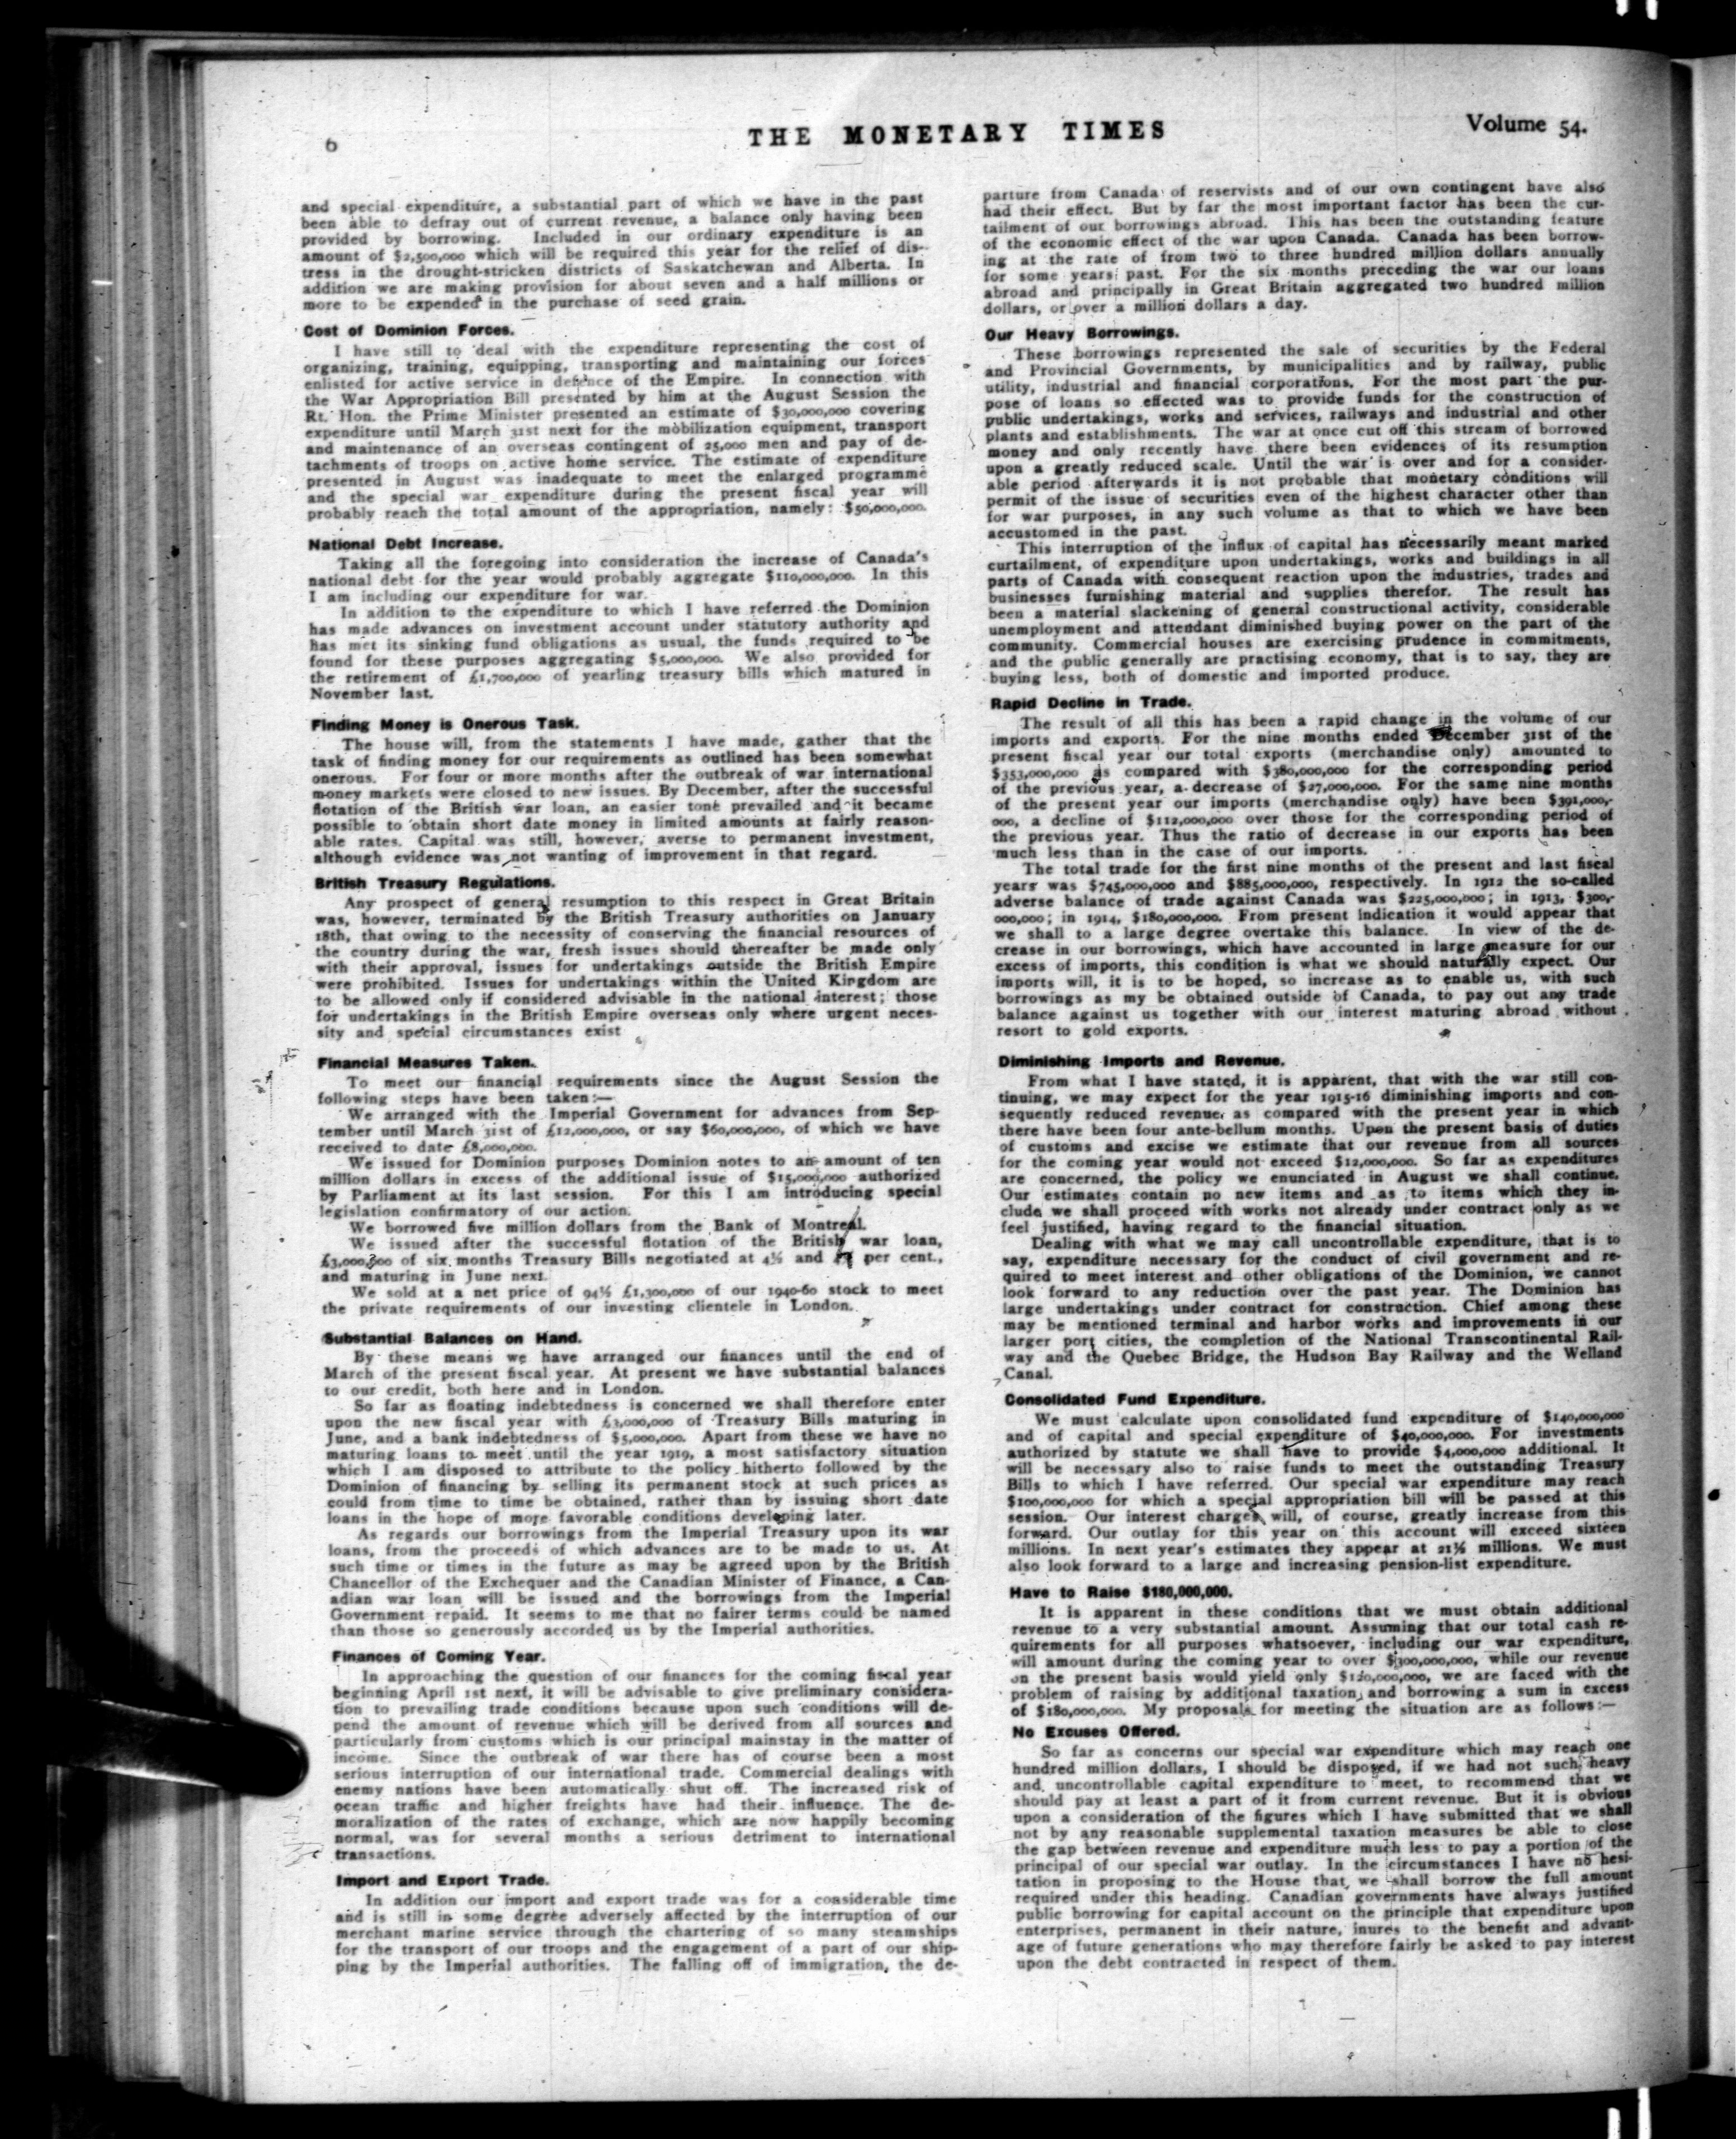 6
THE MONETARY TIMES
Volume 54.
and special expenditure, a substantial part of which we have in the past
been able to defray out of current revenue, a balance only having been
provided by borrowing. Included in our ordinary expenditure is an
amount of $2,500,000 which will be required this year for the relief of dis-
tress in the drought-stricken districts of Saskatchewan and Alberta. In
addition we are making provision for about seven and a half millions or
more to be expended in the purchase of seed grain.
Cost of Dominion Forces.
I have still to deal with the expenditure representing the cost of
organizing, training, equipping, transporting and maintaining our forces
enlisted for active service in defence of the Empire. In connection with
the War Appropriation Bill presented by him at the August Session the
Rt. Hon. the Prime Minister presented an estimate of $30,000,000 covering
expenditure until March 31st next for the mobilization equipment, transport
and maintenance of an overseas contingent of 25,000 men and pay of de-
tachments of troops on active home service. The estimate of expenditure
presented in August was inadequate to meet the enlarged programme
and the special war expenditure during the present fiscal year will
probably reach the total amount of the appropriation, namely: $50,000,000.
National Debt Increase.
Taking all the foregoing into consideration the increase of Canada's
national debt for the year would probably aggregate $110,000,000. In this
I am including our expenditure for war.
In addition to the expenditure to which I have referred the Dominion
has made advances on investment account under statutory authority and
has met its sinking fund obligations as usual, the funds required to be
found for these purposes aggregating $5,000,000. We also provided for
the retirement of £1,700,000 of yearling treasury bills which matured in
November last.
Finding Money is Onerous Task.
The house will, from the statements I have made, gather that the
task of finding money for our requirements as outlined has been somewhat
onerous. For four or more months after the outbreak of war international
money markets were closed to new issues. By December, after the successful
flotation of the British war loan, an easier tone prevailed and it became
possible to obtain short date money in limited amounts at fairly reason-
able rates. Capital was still, however, averse to permanent investment,
although evidence was not wanting of improvement in that regard.
British Treasury Regulations.
Any prospect of general resumption to this respect in Great Britain
was, however, terminated by the British Treasury authorities on January
18th, that owing to the necessity of conserving the financial resources of
the country during the war, fresh issues should thereafter be made only
with their approval, issues for undertakings outside the British Empire
were prohibited. Issues for undertakings within the United Kingdom are
to be allowed only if considered advisable in the national interest; those
for undertakings in the British Empire overseas only where urgent neces-
sity and special circumstances exist
Financial Measures Taken.
To meet our financial requirements since the August Session the
following steps have been taken:—
We arranged with the Imperial Government for advances from Sep-
tember until March 31st of £12,000,000, or say $60,000,000, of which we have
received to date £8,000,000.
We issued for Dominion purposes Dominion notes to an amount of ten
million dollars in excess of the additional issue of $15,000,000 authorized
by Parliament at its last session. For this I am introducing special
legislation confirmatory of our action.
We borrowed five million dollars from the Bank of Montreal.
We issued after the successful flotation of the British war loan,
£3,000,000 of six months Treasury Bills negotiated at 4½ and per cent.,
and maturing in June next.
We sold at a net price of 94½ £1,300,000 of our 1940-60 stock to meet
the private requirements of our investing clientele in London.
Substantial Balances on Hand.
By these means we have arranged our finances until the end of
March of the present fiscal year. At present we have substantial balances
to our credit, both here and in London.
So far as floating indebtedness is concerned we shall therefore enter
upon the new fiscal year with £3,000,000 of Treasury Bills maturing in
June, and a bank indebtedness of $5,000,000. Apart from these we have no
maturing loans to meet until the year 1919, a most satisfactory situation
which I am disposed to attribute to the policy hitherto followed by the
Dominion of financing by selling its permanent stock at such prices as
could from time to time be obtained, rather than by issuing short date
loans in the hope of more favorable conditions developing later.
As regards our borrowings from the Imperial Treasury upon its war
loans, from the proceeds of which advances are to be made to us. At
such time or times in the future as may be agreed upon by the British
Chancellor of the Exchequer and the Canadian Minister of Finance, a Can-
adian war loan will be issued and the borrowings from the Imperial
Government repaid. It seems to me that no fairer terms could be named
than those so generously accorded us by the Imperial authorities.
Finances of Coming Year.
In approaching the question of our finances for the coming fiscal year
beginning April 1st next, it will be advisable to give preliminary considera-
tion to prevailing trade conditions because upon such conditions will de-
pend the amount of revenue which will be derived from all sources and
particularly from customs which is our principal mainstay in the matter of
income. Since the outbreak of war there has of course been a most
serious interruption of our international trade. Commercial dealings with
enemy nations have been automatically shut off. The increased risk of
ocean traffic and higher freights have had their influence. The de-
moralization of the rates of exchange, which are now happily becoming
normal, was for several months a serious detriment to international
transactions.
Import and Export Trade.
In addition our import and export trade was for a considerable time
and is still in some degree adversely affected by the interruption of our
merchant marine service through the chartering of so many steamships
for the transport of our troops and the engagement of a part of our ship-
ping by the Imperial authorities. The falling off of immigration, the de-
parture from Canada of reservists and of our own contingent have also
had their effect. But by far the most important factor has been the cur-
tailment of our borrowings abroad. This has been the outstanding feature
of the economic effect of the war upon Canada. Canada has been borrow-
ing at the rate of from two to three hundred million dollars annually
for some years past. For the six months preceding the war our loans
abroad and principally in Great Britain aggregated two hundred million
dollars, or over a million dollars a day.
Our Heavy Borrowings.
These borrowings represented the sale of securities by the Federal
and Provincial Governments, by municipalities and by railway, public
utility, industrial and financial corporations. For the most part the pur-
pose of loans so effected was to provide funds for the construction of
public undertakings, works and services, railways and industrial and other
plants and establishments. The war at once cut off this stream of borrowed
money and only recently have there been evidences of its resumption
upon a greatly reduced scale. Until the war is over and for a consider-
able period afterwards it is not probable that monetary conditions will
permit of the issue of securities even of the highest character other than
for war purposes, in any such volume as that to which we have been
accustomed in the past.
This interruption of the influx of capital has necessarily meant marked
curtailment, of expenditure upon undertakings, works and buildings in all
parts of Canada with consequent reaction upon the industries, trades and
businesses furnishing material and supplies therefor. The result has
been a material slackening of general constructional activity, considerable
unemployment and attendant diminished buying power on the part of the
community. Commercial houses are exercising prudence in commitments,
and the public generally are practising economy, that is to say, they are
buying less, both of domestic and imported produce.
Rapid Decline in Trade.
The result of all this has been a rapid change in the volume of our
imports and exports. For the nine months ended December 31st of the
present fiscal year our total exports (merchandise only) amounted to
$353,000,000 as compared with $380,000,000 for the corresponding period
of the previous year, a decrease of $27,000,000. For the same nine months
of the present year our imports (merchandise only) have been $391,000,-
000, a decline of $112,000,000 over those for the corresponding period of
the previous year. Thus the ratio of decrease in our exports has been
much less than in the case of our imports.
The total trade for the first nine months of the present and last fiscal
years was $745,000,000 and $885,000,000, respectively. In 1912 the so-called
adverse balance of trade against Canada was $225,000,000; in 1913, $300,-
000,000; in 1914, $180,000,000. From present indication it would appear that
we shall to a large degree overtake this balance. In view of the de-
crease in our borrowings, which have accounted in large measure for our
excess of imports, this condition is what we should naturally expect. Our
imports will, it is to be hoped, so increase as to enable us, with such
borrowings as my be obtained outside of Canada, to pay out any trade
balance against us together with our interest maturing abroad without
resort to gold exports.
Diminishing Imports and Revenue.
From what I have stated, it is apparent, that with the war still con-
tinuing, we may expect for the year 1915-16 diminishing imports and con-
sequently reduced revenue as compared with the present year in which
there have been four ante-bellum months. Upon the present basis of duties
of customs and excise we estimate that our revenue from all sources
for the coming year would not exceed $12,000,000. So far as expenditures
are concerned, the policy we enunciated in August we shall continue.
Our estimates contain no new items and as to items which they in-
clude we shall proceed with works not already under contract only as we
feel justified, having regard to the financial situation.
Dealing with what we may call uncontrollable expenditure, that is to
say, expenditure necessary for the conduct of civil government and re-
quired to meet interest and other obligations of the Dominion, we cannot
look forward to any reduction over the past year. The Dominion has
large undertakings under contract for construction. Chief among these
may be mentioned terminal and harbor works and improvements in our
larger port cities, the completion of the National Transcontinental Rail-
way and the Quebec Bridge, the Hudson Bay Railway and the Welland
Canal.
Consolidated Fund Expenditure.
We must calculate upon consolidated fund expenditure of $140,000,000
and of capital and special expenditure of $40,000,000. For investments
authorized by statute we shall have to provide $4,000,000 additional. It
will be necessary also to raise funds to meet the outstanding Treasury
Bills to which I have referred. Our special war expenditure may reach
$100,000,000 for which a special appropriation bill will be passed at this
session. Our interest charges will, of course, greatly increase from this
forward. Our outlay for this year on this account will exceed sixteen
millions. In next year's estimates they appear at 21½ millions. We must
also look forward to a large and increasing pension-list expenditure.
Have to Raise $180,000,000.
It is apparent in these conditions that we must obtain additional
revenue to a very substantial amount. Assuming that our total cash re-
quirements for all purposes whatsoever, including our war expenditure,
will amount during the coming year to over $300,000,000, while our revenue
on the present basis would yield only $120,000,000, we are faced with the
problem of raising by additional taxation and borrowing a sum in excess
of $180,000,000. My proposals for meeting the situation are as follows:—
No Excuses Offered.
So far as concerns our special war expenditure which may reach one
hundred million dollars, I should be disposed, if we had not such heavy
and uncontrollable capital expenditure to meet, to recommend that we
should pay at least a part of it from current revenue. But it is obvious
upon a consideration of the figures which I have submitted that we shall
not by any reasonable supplemental taxation measures be able to close
the gap between revenue and expenditure much less to pay a portion of the
principal of our special war outlay. In the circumstances I have no hesi-
tation in proposing to the House that we shall borrow the full amount
required under this heading. Canadian governments have always justified
public borrowing for capital account on the principle that expenditure upon
enterprises, permanent in their nature, inures to the benefit and advant-
age of future generations who may therefore fairly be asked to pay interest
upon the debt contracted in respect of them.